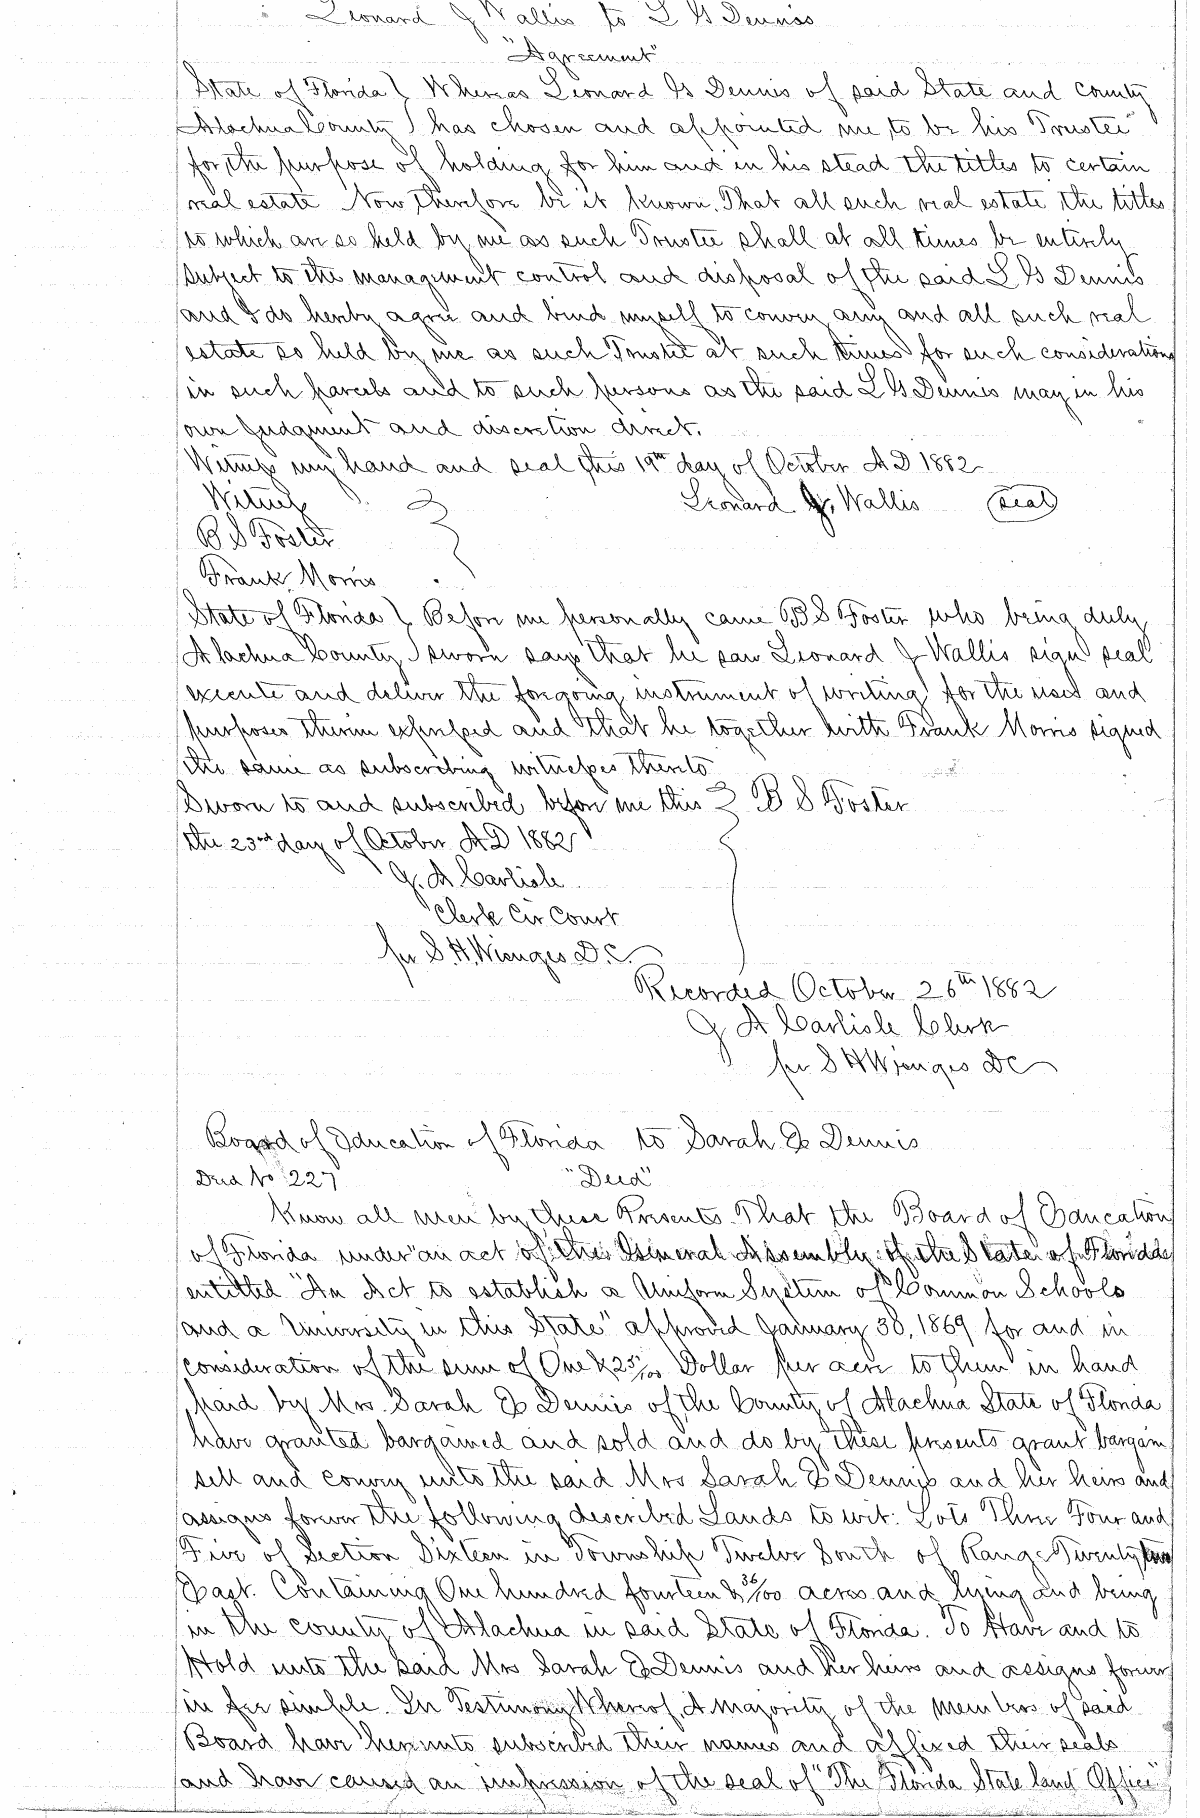 Leonard J Wallis to L G Dennis
"Agreement"
State of Florida } Whereas Leonard G Dennis of said State and County
Alachua County } has chosen and appointed me to be his Trustee
for the purpose of holding for him and in his stead the titles to certain
real estate Now therefore be it known. That all such real estate the titles
to which are so held by me as such Trustee shall at all times be entirely
subject to the management control and disposal of the said L G Dennis
and I do hereby agree and bind myself to convey any and all such real
estate so held by me as such Trustee at such times for such considerations
in such parcels and to such persons as the said L G Dennis may in his
own judgment and discretion direct.
Witness my hand and seal this 19th day of October A D 1882
Witness Leonard J. Wallis (seal)
B S Foster
Frank Morris
State of Florida } Before me personally came B S Foster who being duly
Alachua County } sworn says that he saw Leonard J Wallis sign seal
execute and deliver the foregoing instrument of writing for the uses and
purposes therein expressed and that he together with Frank Morris signed
the same as subscribing witnesses thereto
Sworn to and subscribed before me this } B S Foster
the 23rd day of October A D 1882
J. A Carlisle
Clerk Cir Court
per S. H. Wienges D.C.
Recorded October 26th 1882
J A Carlisle Clerk
per S H Wienges DC
Board of Education of Florida to Sarah E Dennis
Deed No 227 "Deed"
Know all men by these Presents. That the Board of Education
of Florida under an act of the General Assembly of the State of Florida
entitled "An Act to establish a Uniform System of Common Schools
and a University in this State" approved January 30, 1869 for and in
consideration of the sum of One & 25/100 Dollar per acre to them in hand
paid by Mrs. Sarah E Dennis of the County of Alachua State of Florida
have granted bargained and sold and do by these presents grant bargain
sell and convey unto the said Mrs Sarah E Dennis and her heirs and
assigns forever the following described Lands to wit: Lots Three Four and
Five of Section Sixteen in Township Twelve South of Range Twenty
East. Containing One hundred fourteen & 36/100 acres and lying and being
in the county of Alachua in said State of Florida. To Have and to
Hold unto the said Mrs Sarah E Dennis and her heirs and assigns forever
in fee simple. In Testimony Whereof, A Majority of the Members of said
Board have hereunto subscribed their names and affixed their seals
and have caused an impression of the seal of "The Florida State land Office"